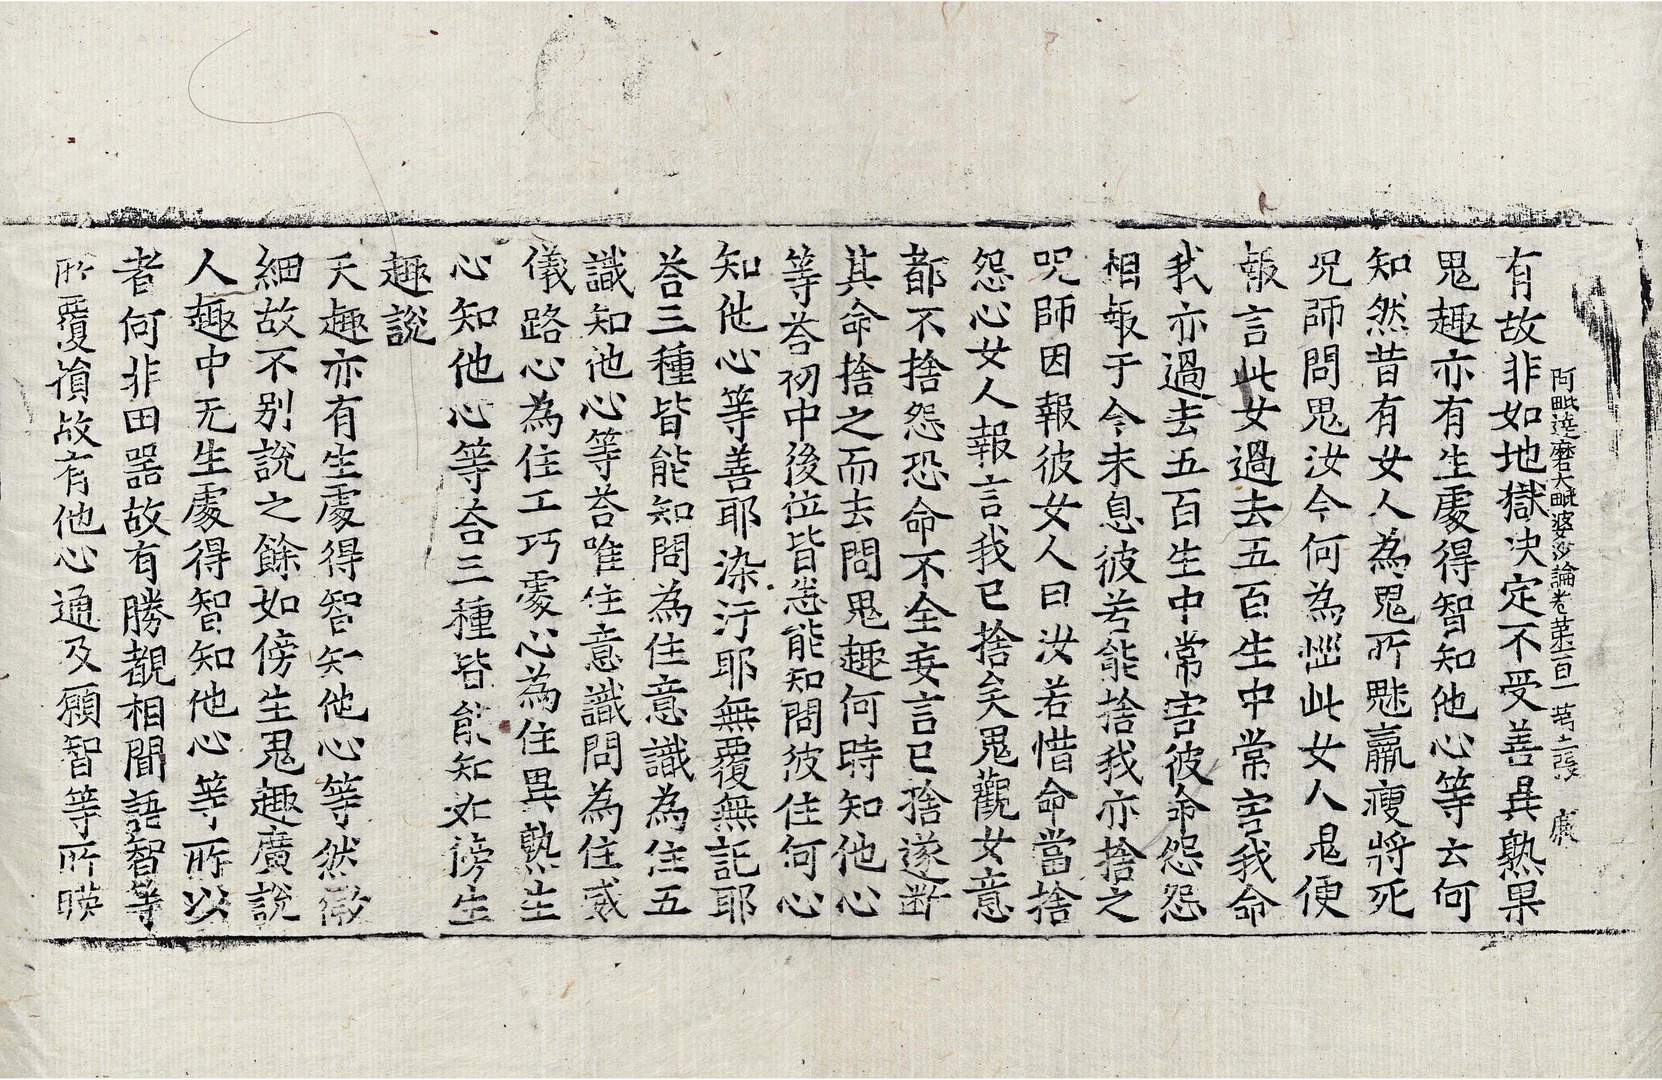 阿毗達磨大毗婆沙論卷第一百一 第二張 廉
有故非如地獄決定不受善異熟果
鬼趣亦有生處得智知他心等云何
知然昔有女人為鬼所魅羸瘦將死
呪師問鬼汝今何為惱此女人鬼便
報言此女過去五百生中常害我命
我亦過去五百生中常害彼命怨怨
相報于今未息彼若能捨我亦捨之
呪師因報彼女人曰汝若惜命當捨
怨心女人報言我已捨矣鬼觀女意
都不捨怨恐命不全妄言已捨遂斷
其命捨之而去問鬼趣何時知他心
等荅初中後位皆悉能知問彼住何心
知他心等善耶染汙耶無覆無記耶
荅三種皆能知問為住意識為住五
識知他心等荅唯住意識問為住威
儀路心為住工巧處心為住異熟生
心知他心等荅三種皆能知如傍生
趣說
天趣亦有生處得智知他心等然微
細故不別說之餘如傍生鬼趣廣說
人趣中无生處得智知他心等所以
者何非田器故有勝覩相聞語智等
所覆損故有他心通及願智等所暎